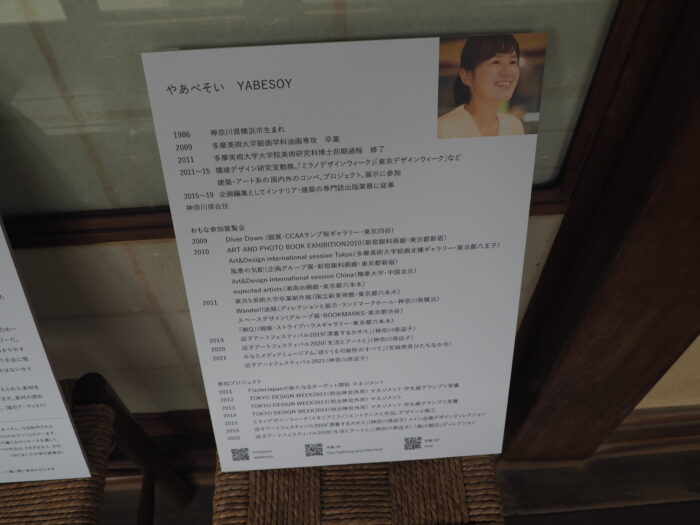 やあべそい YABESOY
1986 神奈川県横浜市生まれ
2009 多摩美術大学絵画学科油画専攻 卒業
2011 多摩美術大学大学院美術研究科博士前期過程 修了
2011〜15 環境デザイン研究室勤務。「ミラノデザインウィーク」「東京デザインウィーク」など
建築・アート系の国内外のコンペ、プロジェクト、展示に参加
2015〜19 企画編集としてインテリア・建築の専門誌出版業務に従事
神奈川県在住
おもな参加展覧会
2009 Diver Down（個展・CCAAランプ坂ギャラリー・東京四谷）
2010 ART AND PHOTO BOOK EXHIBITION2010（新宿眼科画廊・東京都新宿）
Art&Design international session Tokyo（多摩美術大学絵画北棟ギャラリー・東京都八王子）
風景の気配（企画グループ展・新宿眼科画廊・東京都新宿）
Art&Design international session China（精華大学・中国北京）
expected artists（湘南台画廊・東京都六本木）
2011 東京5美術大学卒業制作展（国立新美術館・東京都六本木）
Wander!!迷路（ディレクションと展示・ランドマークホール・神奈川県横浜）
スペースデザイン（グループ展・BOOKMARKS・東京都渋谷）
「朝Q」（個展・ストライプハウスギャラリー・東京都六本木）
2019 逗子アートフェスティバル2019「漂着するカオス」（神奈川県逗子）
2020 逗子アートフェスティバル2020「生活とアートと」（神奈川県逗子）
2021 みなとメディアミュージアム「語りうる可能性のすべて」（茨城県ひたちなか市）
逗子アートフェスティバル2021（神奈川県逗子）
参加プロジェクト
2011 FisslerJapanの新たなるターゲット開拓 マネジメント
2012 TOKYO DESIGN WEEK2012（明治神宮外苑） マネジメント 学生展グランプリ受賞
2013 TOKYO DESIGN WEEK2013（明治神宮外苑） マネジメント 学生展グランプリ受賞
2014 TOKYO DESIGN WEEK2014（明治神宮外苑） マネジメント 学生展グランプリ受賞
2015 ミラノデザインウィーク（イタリアミラノ）エントランス作品、デザインと施工
2019 逗子アートフェスティバル2019「漂着するカオス」（神奈川県逗子）メイン会場デザインディレクション
2020 逗子アートフェスティバル2020「生活とアートと」（神奈川県逗子）